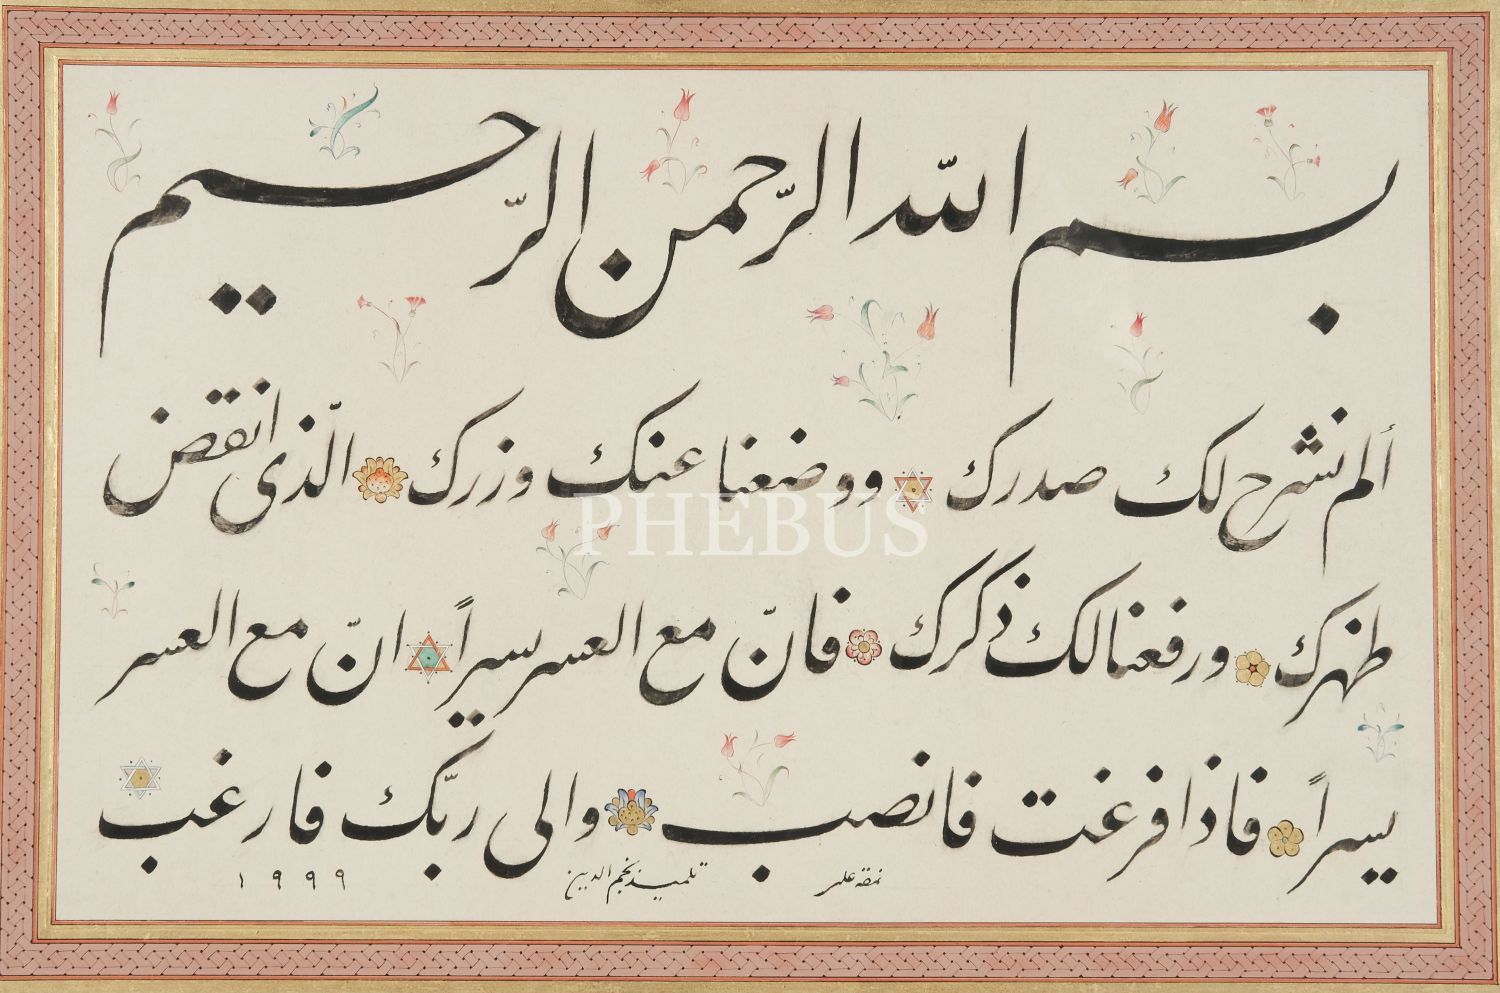 بسم الله الرّحمن الرّحيم
ألم نشرح لك صدرك ووضعنا عنك وزرك الّذى انقض
ظهرك ورفعنا لك ذكرك فانّ مع العسر يسراً انّ مع العسر
يسراً فاذا فرغت فانصب والى ربّك فارغب
نمقه على تلميذ نجم الدين ١٩٩٩
PHEBUS